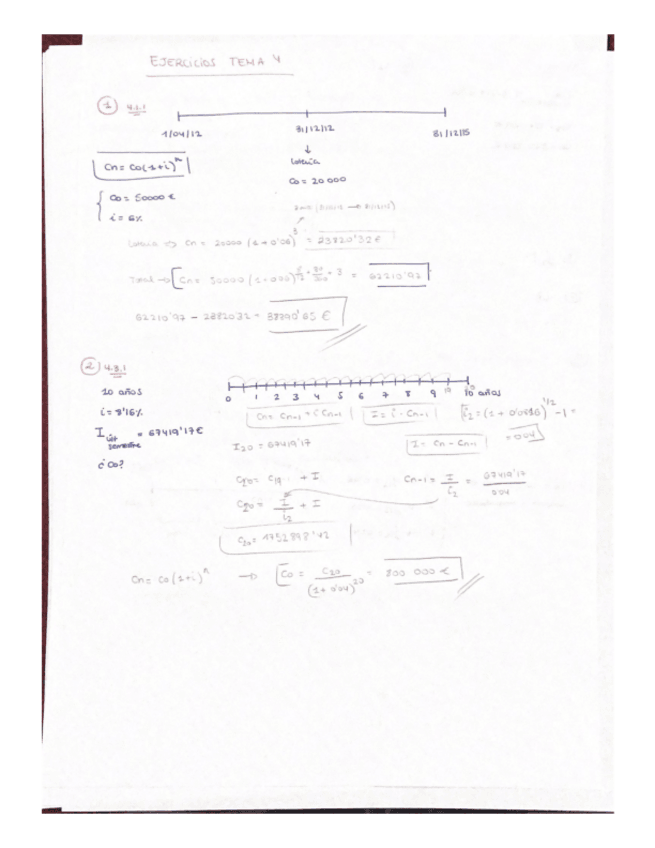 EJERCICIOS TEMA 4
1 4.1.1
1/04/12 31/12/12 31/12/15
↓
Lotería
Co = 20 000
Cn = Co(1+i)^n
Co = 50000 €
i = 6%
Lotería => Cn = 20000 (1+0'06)^3 = 23820'32 €
Total → = 62210'97
62210'97 - 2382032 = 38390'65 €
2 4.3.1
10 años
i = 8'16%
I últ semestre = 67419'17 €
¿Co?
0 1 2 3 4 5 6 7 8 9 10 años
Cn = Cn-1 + i Cn-1 I = i · Cn-1 i2 = (1 + 0'0816)^1/2 - 1 =
= 0'04
I20 = 67419'17 I = Cn - Cn-1
C20 = C19 + I Cn-1 = I/i2 = 67419'17/0'04
C20 = I/i2 + I
C20 = 1752898'42
Cn = Co(1+i)^n → Co = C20/(1+0'04)^20 = 800 000 €